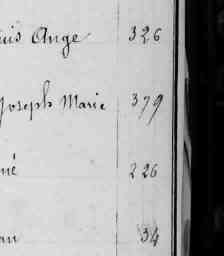 uis Ange 326
Joseph Marie 379
né 226
an 34